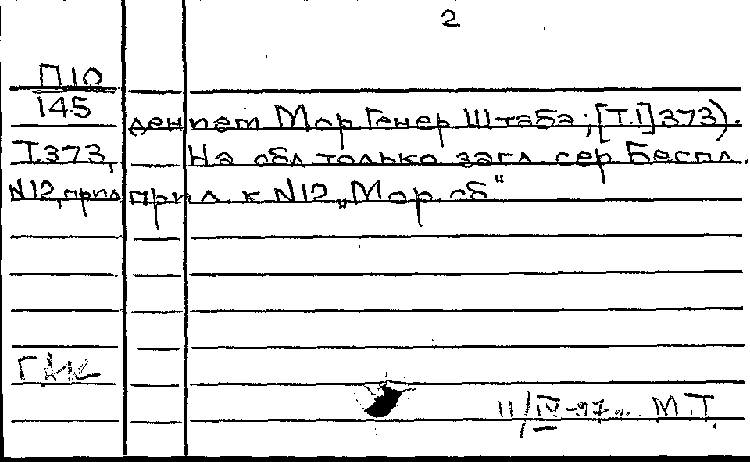 2
П10
145
ден пет Мор Генер Штаба; [Т.1] 373).
Т.373, На обл только загл. сер. Беспл.
N12, прил прил. к N12 „Мор. сб“
11/IV-97г. М.Т.